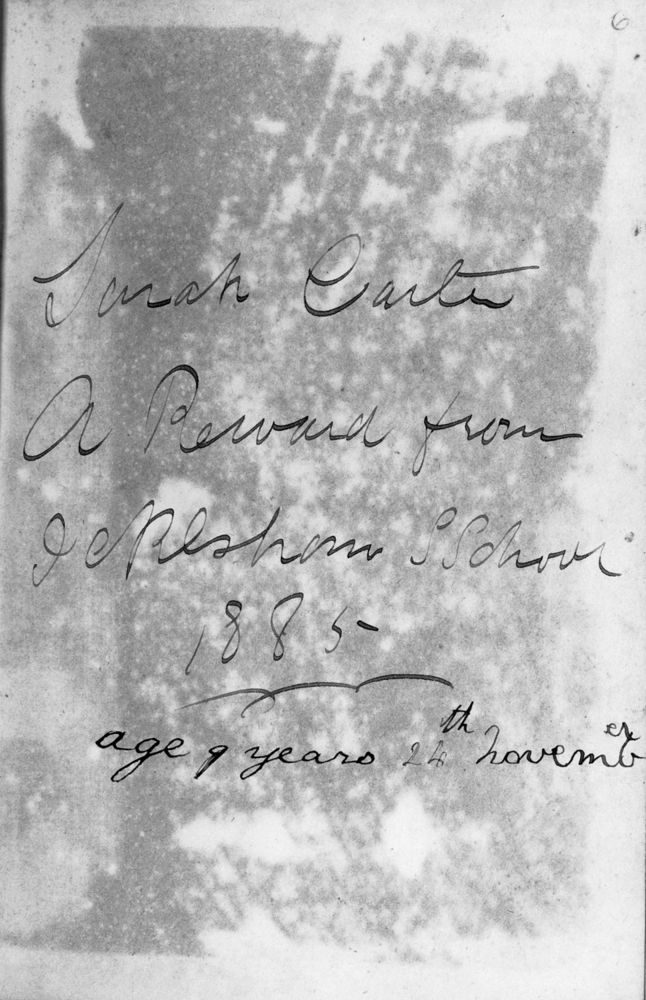 6
Sarah Carter
A Reward from
Icklesham S School
1885
age 9 years 24th november